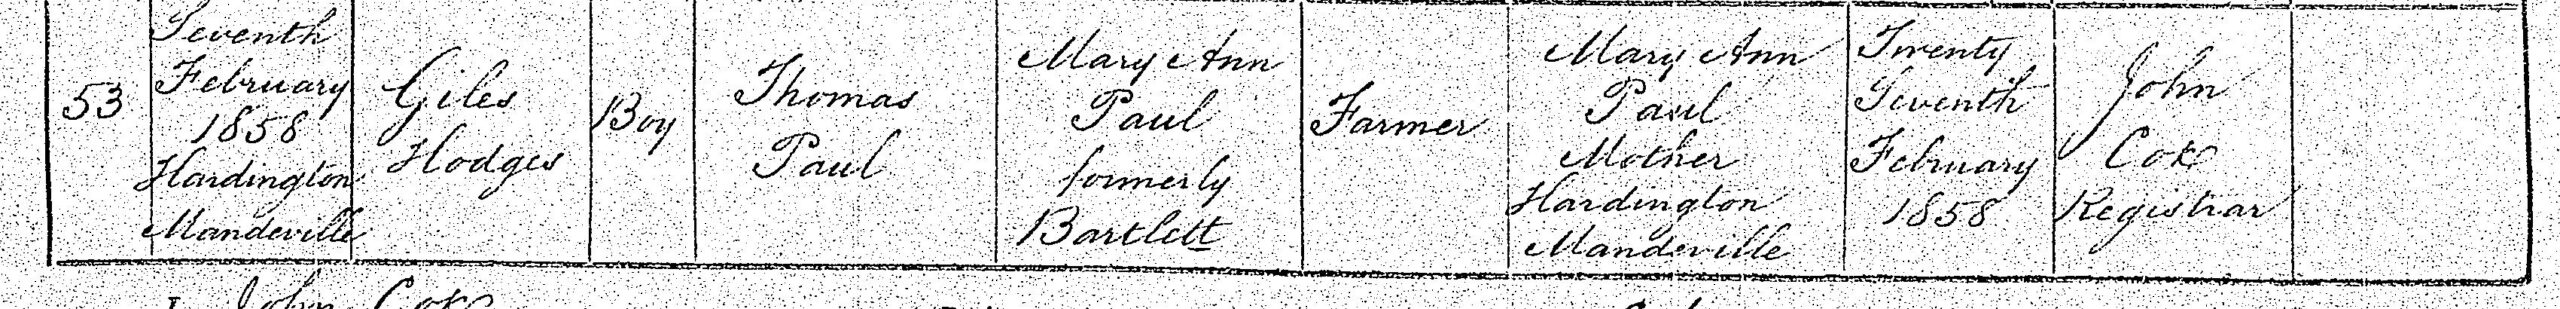 53
Seventh
February
1858
Hardington
Mandeville
Giles
Hodges
Boy
Thomas
Paul
Mary Ann
Paul
formerly
Bartlett
Farmer
Mary Ann
Paul
Mother
Hardington
Mandeville
Twenty
Seventh
February
1858
John
Cox
Registrar
John Cox